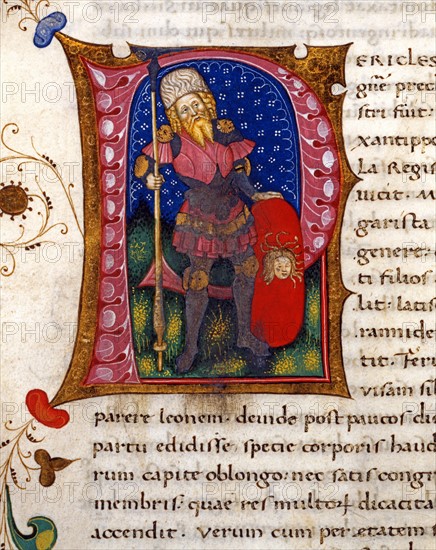 P
ERICLES
strí fuit.
xantippo
la Regis
uicit. M
garista
genere. e
ti filios
lit. latis
ramide
tit. Teru
visam sil
parere leonem. deinde post paucos di
partu edidisse, specie corporis haud
rum capite oblongo. nec satis congr
membris. quae res multoꝝ dicacita
accendit. Verum cum per ętatem s